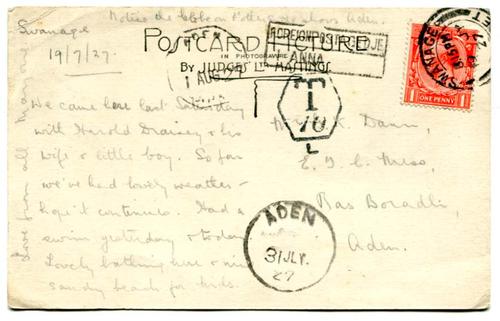 Notice the on Pottery as above Aden.
Swanage
19/7/27.
POSTCARD PICTURE
IN PHOTOGRAVURE
BY JUDGES LTD HASTINGS
ADEN
1 AUG 27
FOREIGN POSTAGE DUE
ANNA
T
10
L
SWANAGE
ONE PENNY
1 1
We came here last Saturday
with Harold & his
wife & little boy. So far
we've had lovely weather –
hope it continues. Had a
swim yesterday & today
Lovely bathing here &
sandy beach for kids.
Love from all
K. Dann,
E. T. C. Mess,
Ras Boradli,
Aden.
ADEN
31 JLY.
27